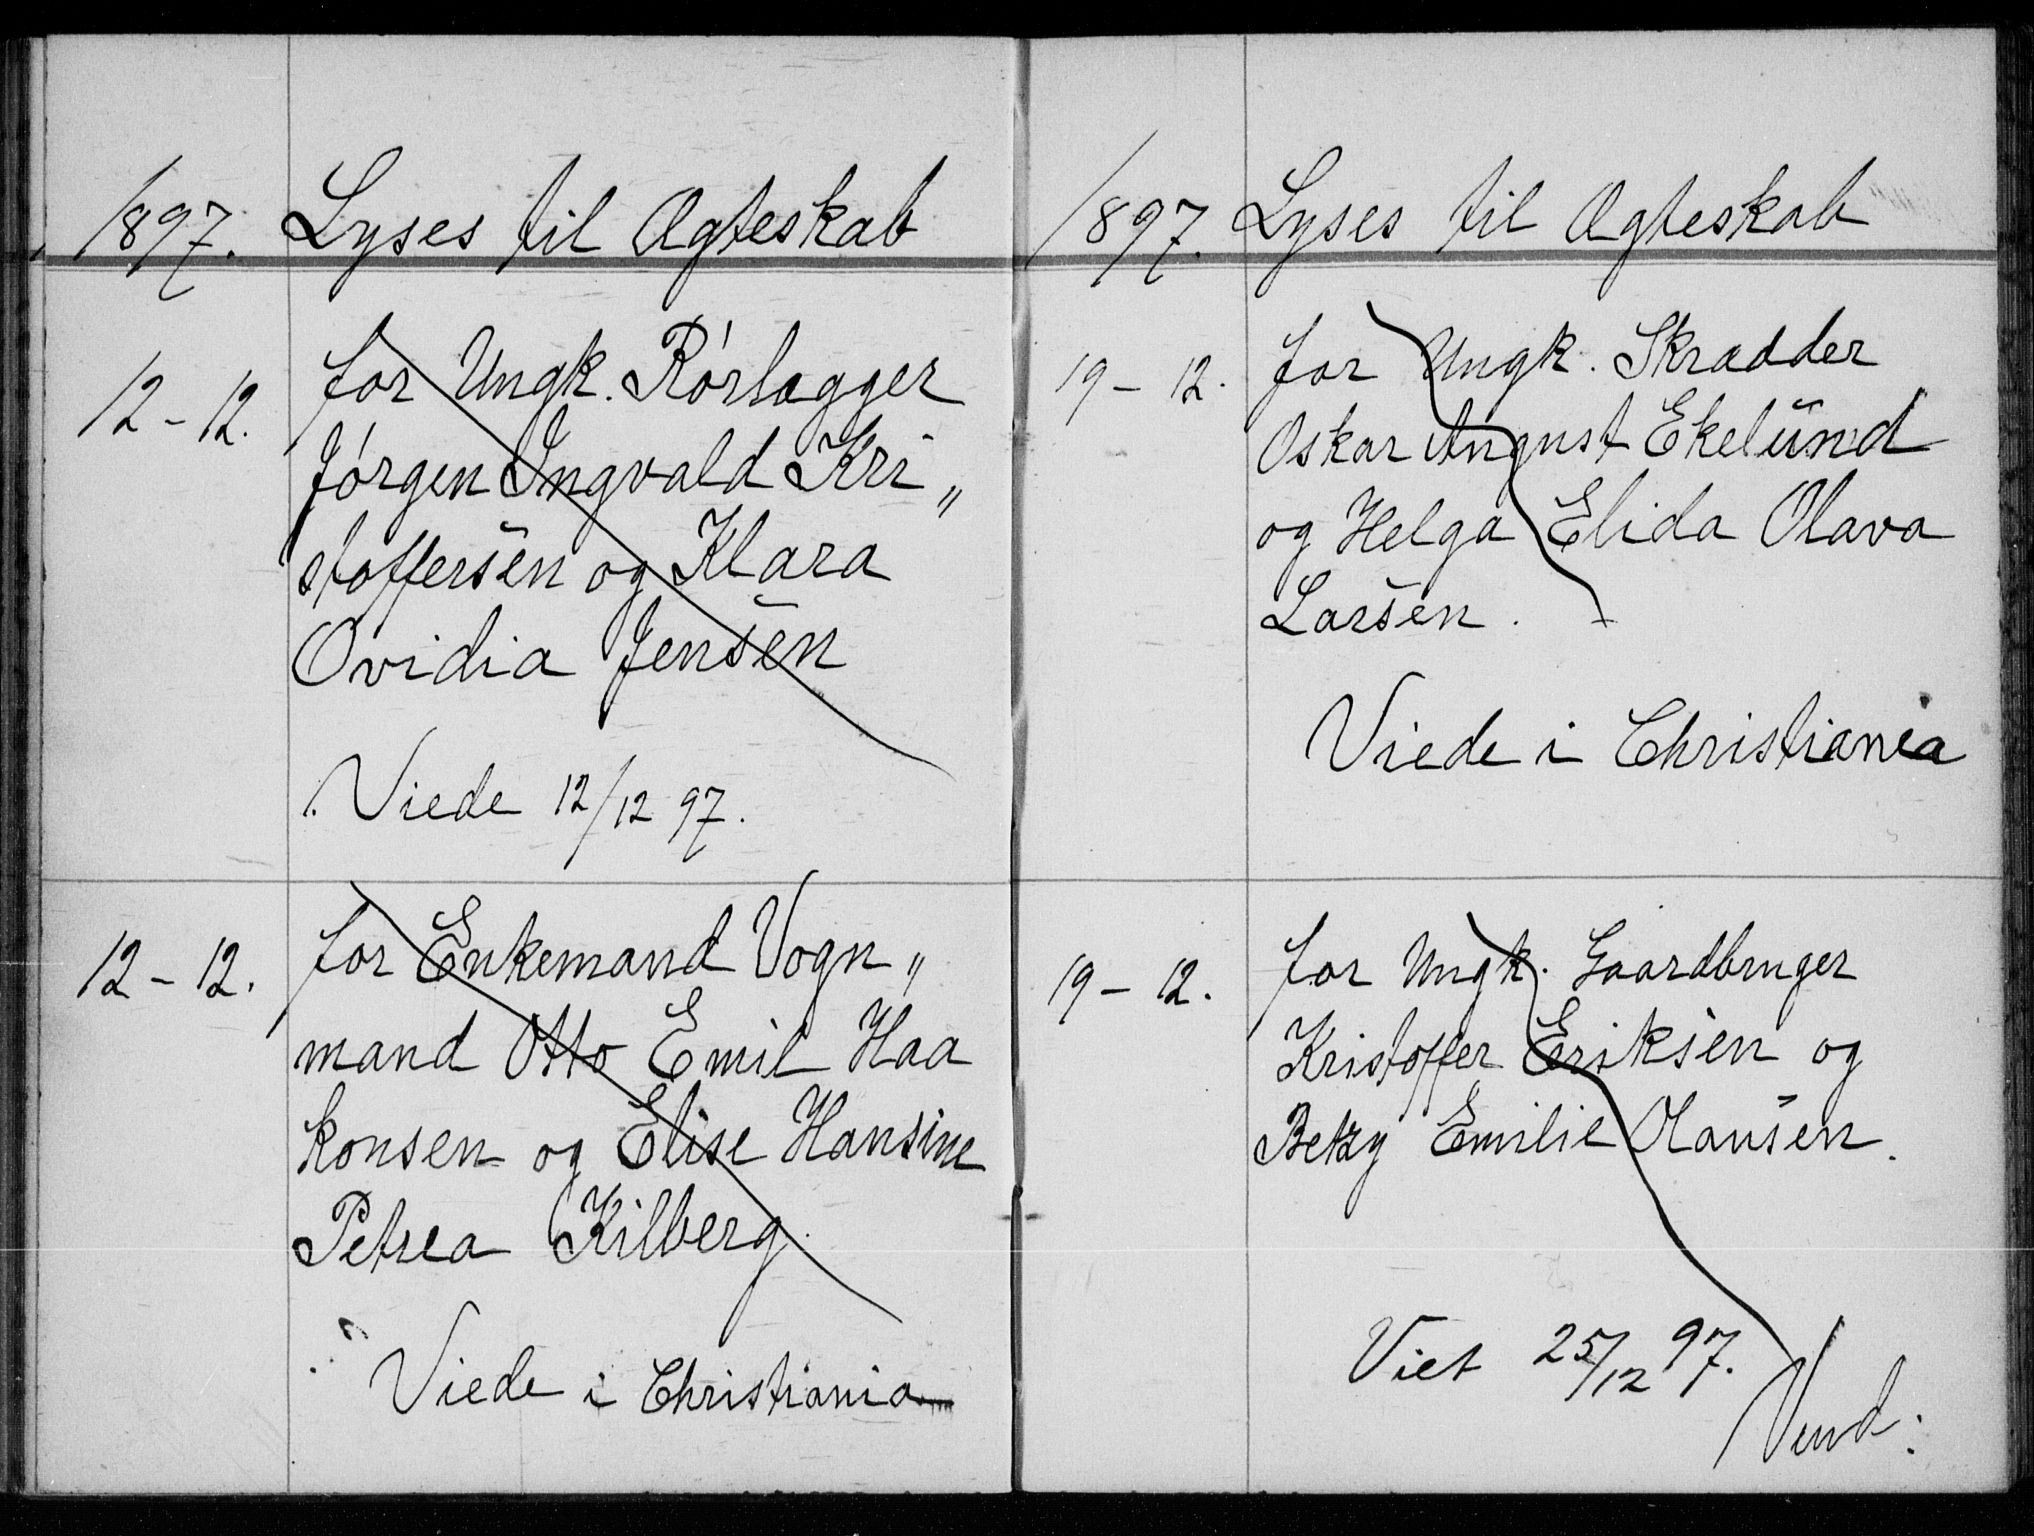 1897. Lyses til Ægteskab
12-12. for Ungk. Rörlægger
Jörgen Ingvald Kri„
stoffersen og Klara
Ovidia Jensen
Viede 12/12 97.
12-12. for Enkemand Vogn„
mand Otto Emil Haa
konsen og Elise Hansine
Petrea Kilberg.
Viede i Christiania
1897. Lyses til Ægteskab
19-12. for Ungk. Skrædder
Oskar August Ekelund
og Helga Elida Olava
Larsen.
Viede i Christiania
19-12. for Ungk. Gaardbruger
Kristoffer Eriksen og
Betzy Emilie Olausen.
Viet 25/12 97.
Vend: